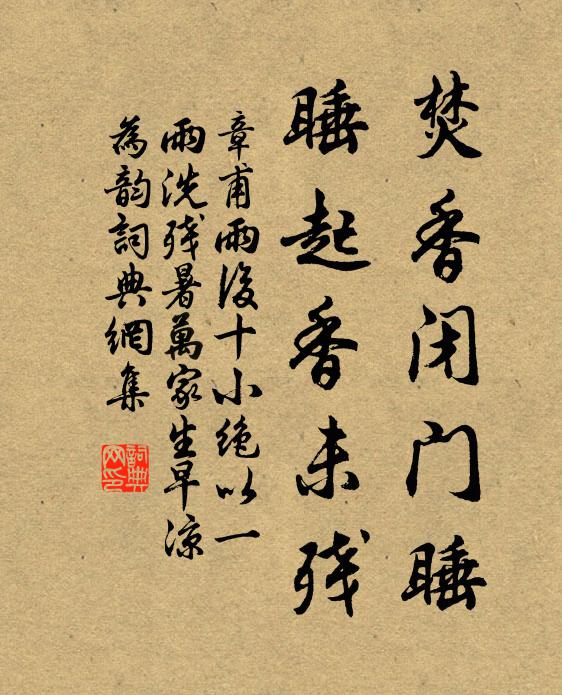 焚香闭门睡
睡起香未残
章甫雨後十小绝以一
雨洗残暑萬家生早凉
為韵詞典網集
詞典
网印